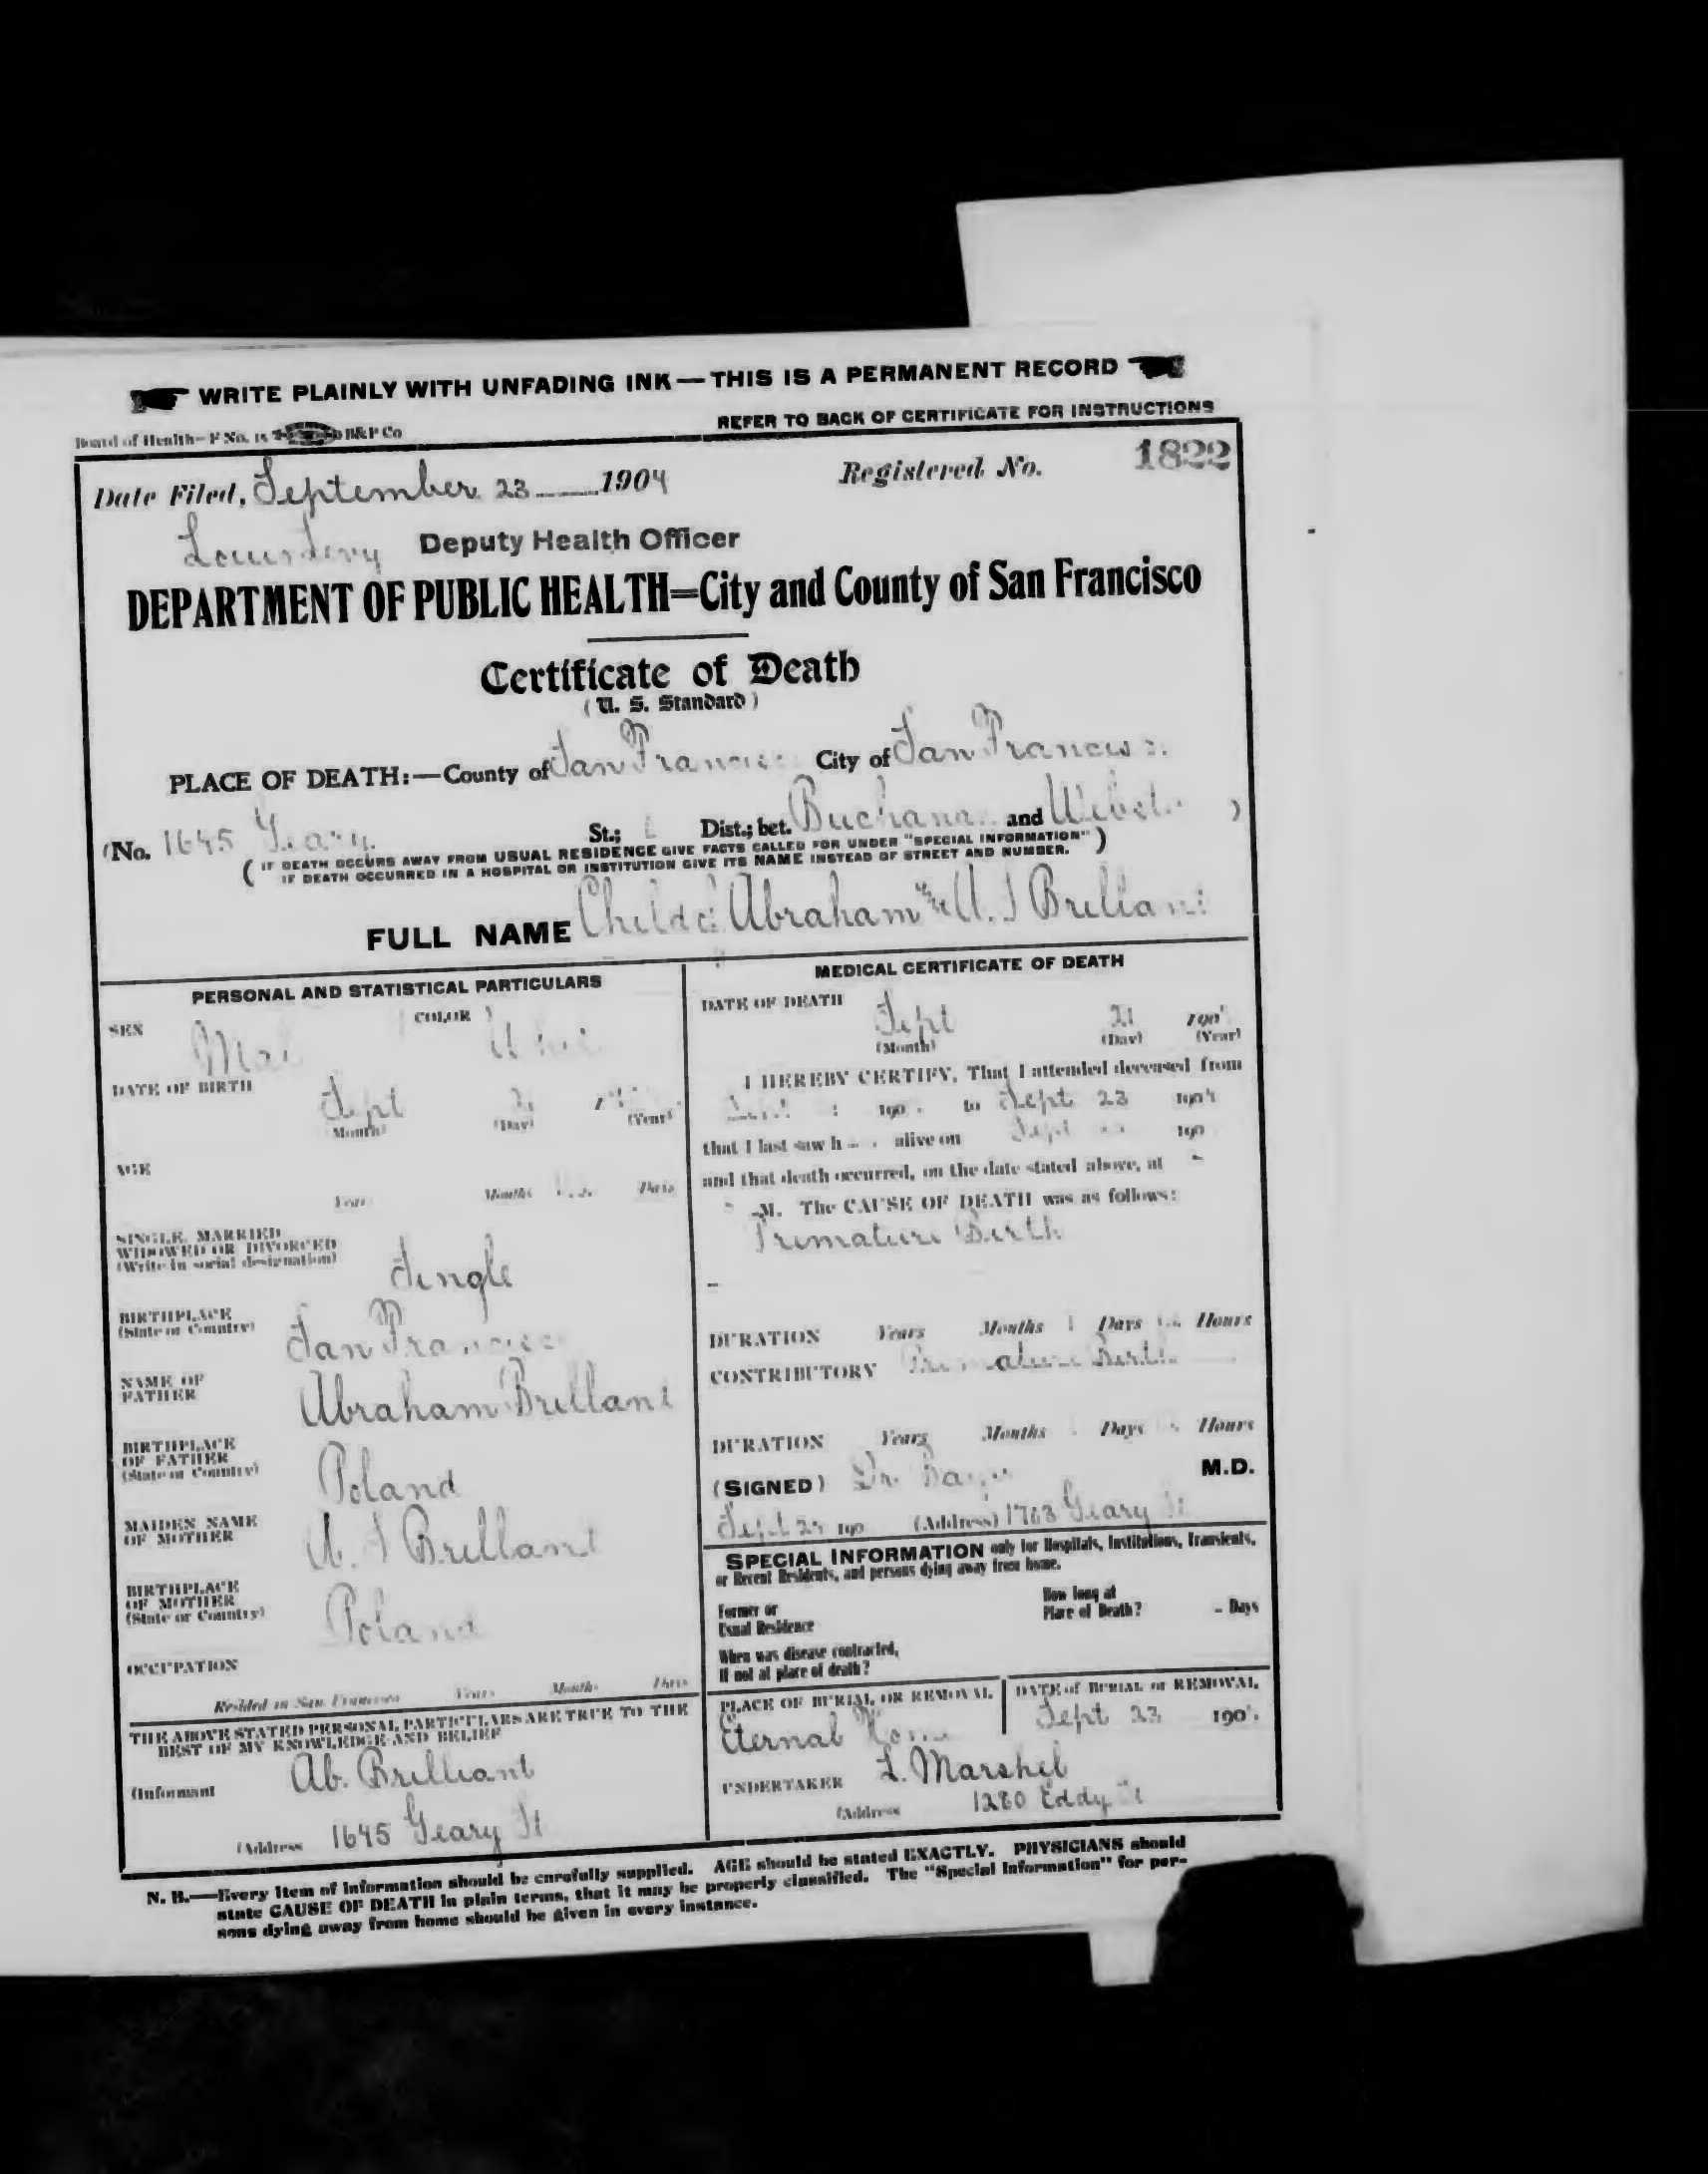 WRITE PLAINLY WITH UNFADING INK — THIS IS A PERMANENT RECORD
REFER TO BACK OF CERTIFICATE FOR INSTRUCTIONS
Board of Health—F No. 15 B&P Co
Date Filed, September 23 1904 Registered No. 1822
Louis Levy Deputy Health Officer
DEPARTMENT OF PUBLIC HEALTH=City and County of San Francisco
Certificate of Death
(U. S. Standard)
PLACE OF DEATH:—County of San Francisco City of San Francisco
(No. 1645 Geary St.; Dist.; bet. Buchanan and Webster )
( IF DEATH OCCURS AWAY FROM USUAL RESIDENCE GIVE FACTS CALLED FOR UNDER "SPECIAL INFORMATION" )
IF DEATH OCCURRED IN A HOSPITAL OR INSTITUTION GIVE ITS NAME INSTEAD OF STREET AND NUMBER.
FULL NAME Child of Abraham A. S Brillant
PERSONAL AND STATISTICAL PARTICULARS
SEX Mal COLOR Whi
DATE OF BIRTH Sept
(Month) (Day) (Year)
AGE
Years Months Days
SINGLE, MARRIED
WIDOWED OR DIVORCED
(Write in social designation)
Single
BIRTHPLACE
(State or Country)
San Francisco
NAME OF
FATHER
Abraham Brillant
BIRTHPLACE
OF FATHER
(State or Country)
Poland
MAIDEN NAME
OF MOTHER
A. S Brillant
BIRTHPLACE
OF MOTHER
(State or Country)
Poland
OCCUPATION
Resided in San Francisco Years Months Days
THE ABOVE STATED PERSONAL PARTICULARS ARE TRUE TO THE
BEST OF MY KNOWLEDGE AND BELIEF
(Informant Ab. Brilliant
(Address 1645 Geary St
MEDICAL CERTIFICATE OF DEATH
DATE OF DEATH
Sept 21 190
(Month) (Day) (Year)
I HEREBY CERTIFY, That I attended deceased from
190 to Sept 23 1904
that I last saw h alive on Sept 190
and that death occurred, on the date stated above, at -
- M. The CAUSE OF DEATH was as follows:
Premature Birth
DURATION Years Months Days Hours
CONTRIBUTORY Premature Birth
DURATION Years Months Days Hours
(SIGNED) Dr. M.D.
Sept 190 (Address) 1703 Geary St
SPECIAL INFORMATION only for Hospitals, Institutions, Transients,
or Recent Residents, and persons dying away from home.
Former or
Usual Residence
How long at
Place of Death? - Days
When was disease contracted,
If not at place of death?
PLACE OF BURIAL OR REMOVAL
Eternal Home
DATE of BURIAL or REMOVAL
Sept 23 190
UNDERTAKER L. Marshel
(Address 1280 Eddy St
N. B.—Every item of information should be carefully supplied. AGE should be stated EXACTLY. PHYSICIANS should
state CAUSE OF DEATH in plain terms, that it may be properly classified. The "Special Information" for per-
sons dying away from home should be given in every instance.